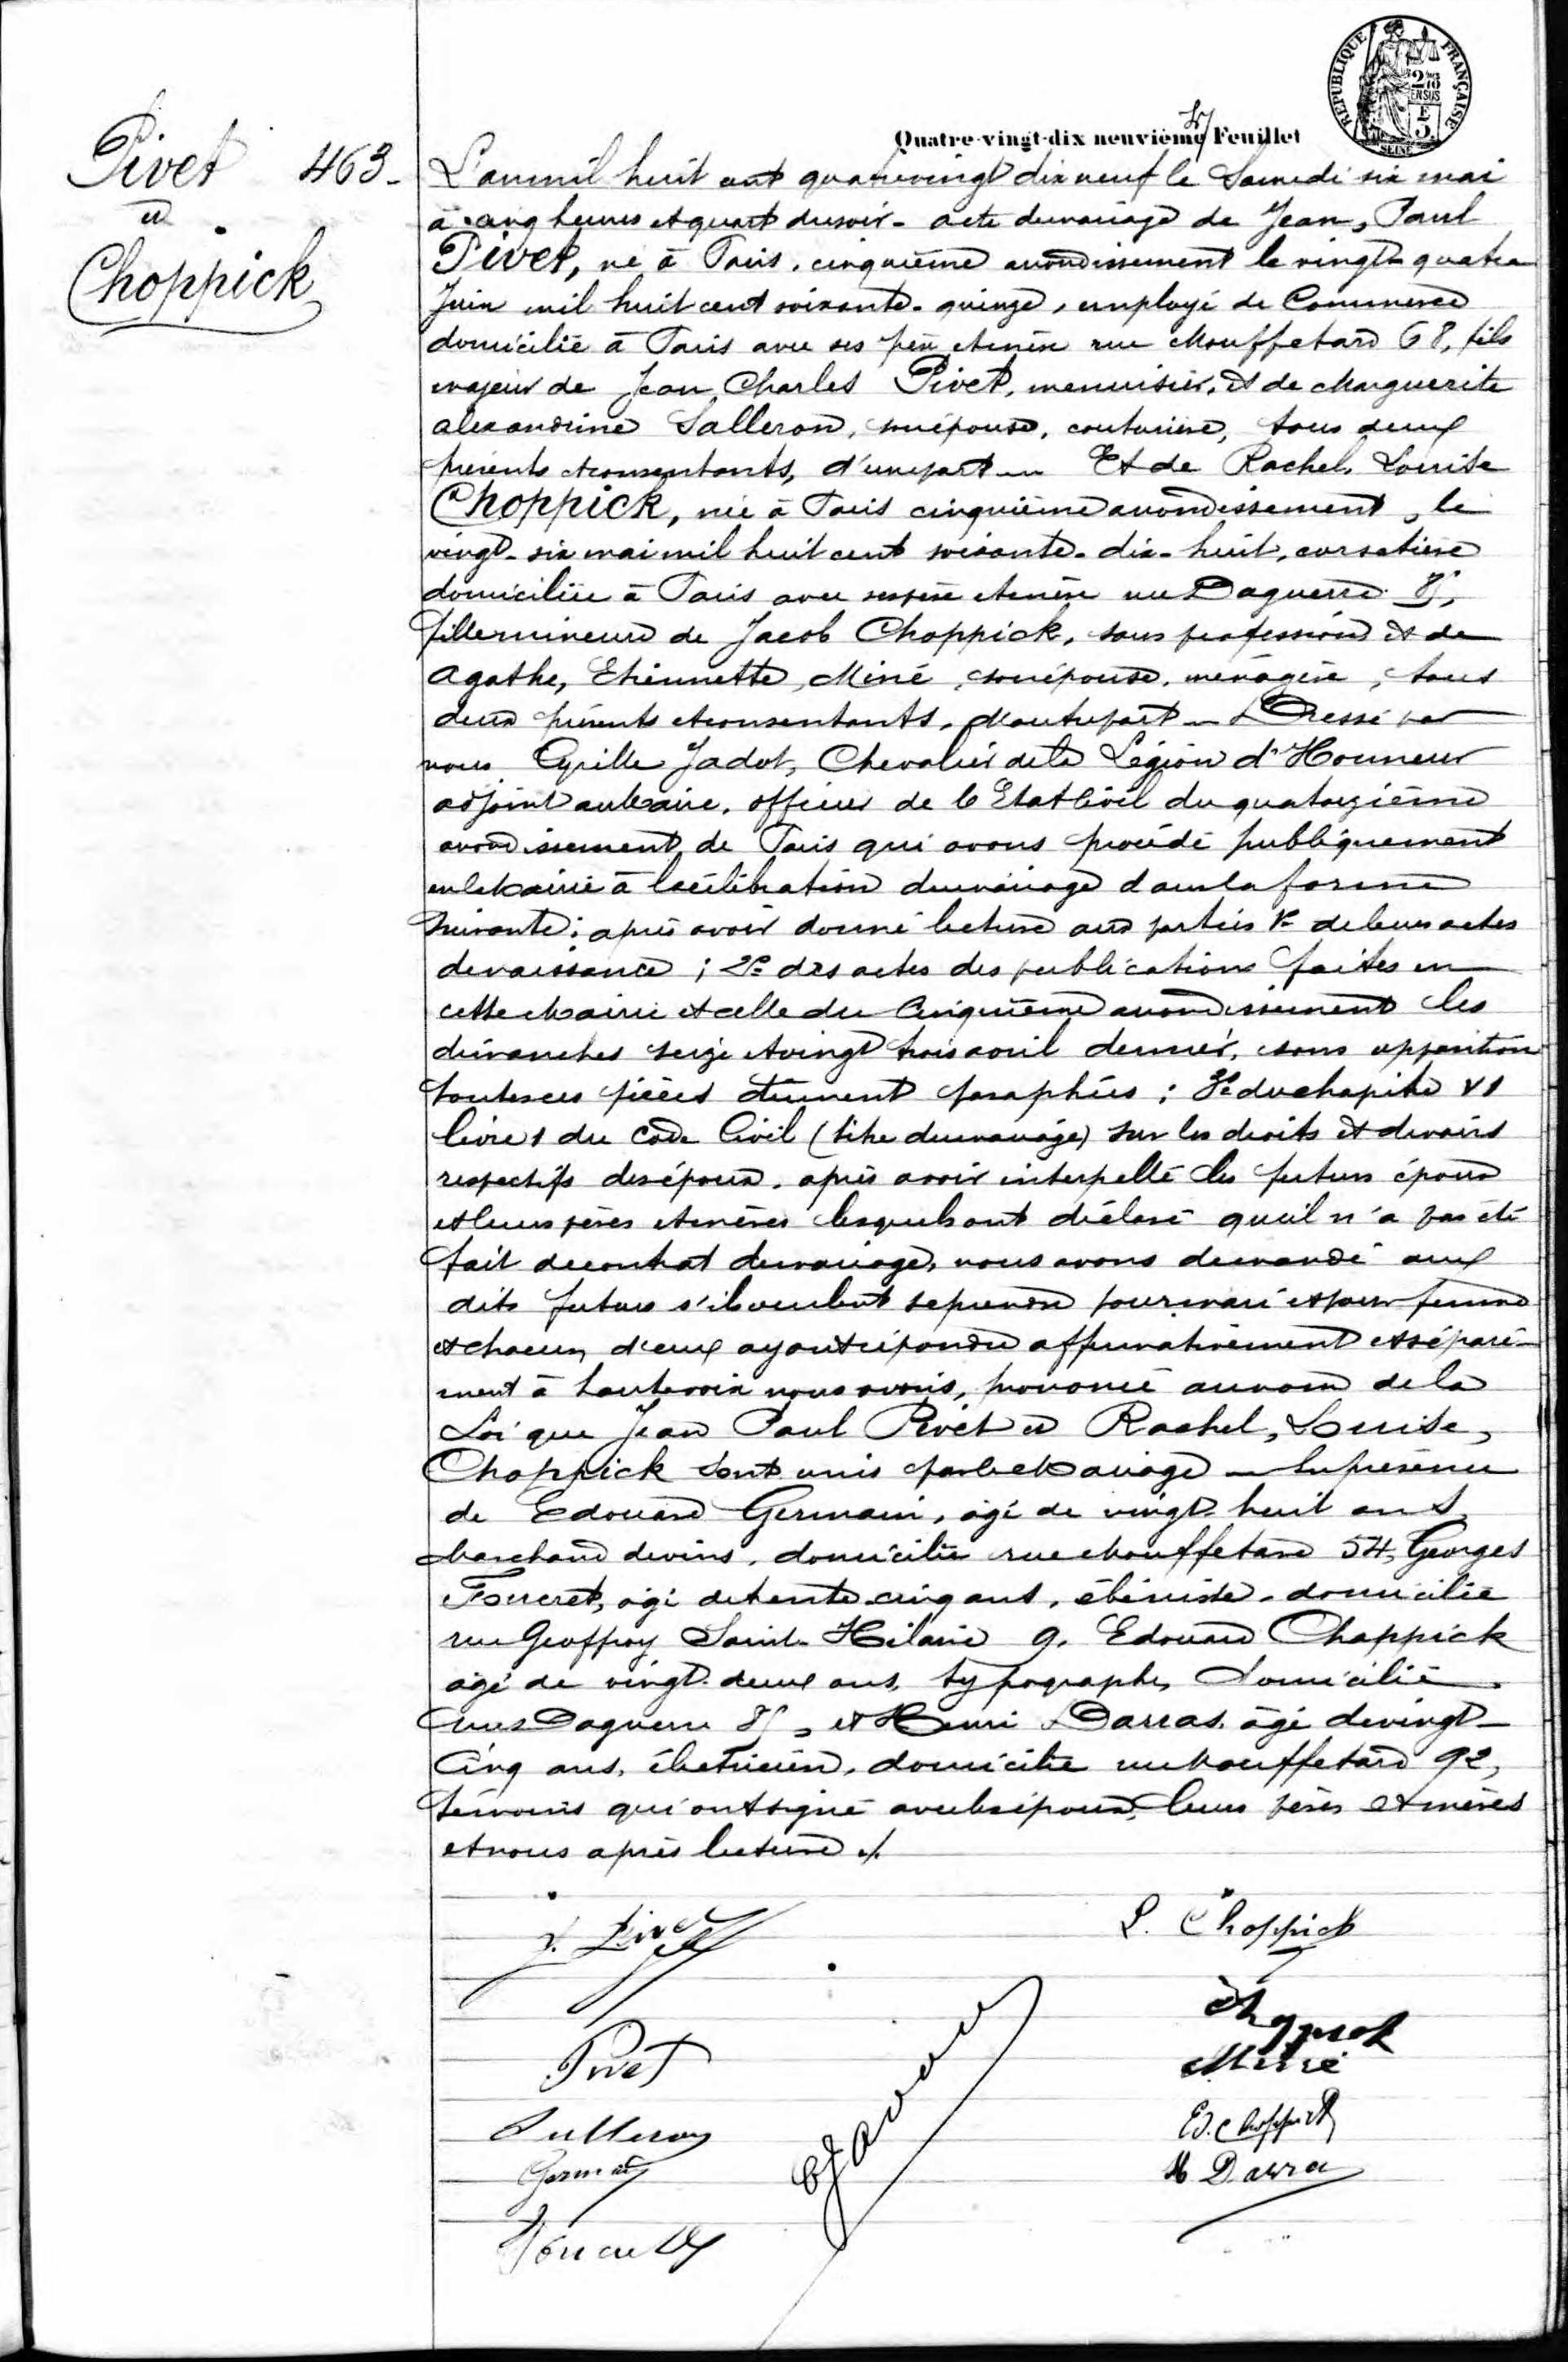 RÉPUBLIQUE FRANÇAISE
SEINE
Quatre-vingt-dix neuvième Feuillet
Pivet 463_
et
Choppick
L'an mil huit cent quatrevingt dix neuf le Samedi six mai
à cinq heures et quart du soir_ acte de mariage de Jean, Paul
Pivet, né à Paris, cinquième arrondissement le vingt-quatre
Juin mil huit cent soixante-quinze, employé de Commerce
domicilié à Paris avec ses père et mère rue Mouffetard 68, fils
majeur de Jean, Charles Pivet, menuisier, et de Marguerite
Alexandrine Salleron, son épouse, couturière, tous deux
présents et consentants, d'une part_ Et de Rachel, Louise
Choppick, née à Paris cinquième arrondissement, le
vingt-six mai mil huit cent soixante-dix-huit, corsetière
domiciliée à Paris avec ses père et mère rue Daguerre
fille mineure de Jacob Choppick, sans profession et de
Agathe, Etiennette, Miné, son épouse, ménagère, tous
deux présents et consentants, d'autre part_ Dressé par
nous Cyrille Jadot, Chevalier de la Légion d'Honneur
adjoint au Maire, officier de l'Etat Civil du quatorzième
arrondissement de Paris qui avons procédé publiquement
en la Mairie à la célébration du mariage dans la forme
suivante: après avoir donné lecture aux parties 1° de leurs actes
de naissance; 2° des actes des publications faites en
cette Mairie et celle du Cinquième arrondissement les
dimanches seize et vingt trois avril dernier, sans opposition
toutes ces pièces dûment paraphées; 3° du chapitre VI
livre 1 du Code Civil (titre du mariage) sur les droits et devoirs
respectifs des époux, après avoir interpellé les futurs époux
et leurs pères et mères lesquels ont déclaré qu'il n'a pas été
fait de contrat de mariage, nous avons demandé aux
dits futurs s'ils veulent se prendre pour mari et pour femme
et chacun d'eux ayant répondu affirmativement et séparé-
ment à haute voix nous avons, prononcé au nom de la
Loi que Jean Paul Pivet et Rachel, Louise,
Choppick sont unis par le Mariage_ En présence
de Edouard Germain, âgé de vingt-huit ans,
Marchand de vins, domicilié rue Mouffetard 54, Georges
Fourcret, âgé de trente-cinq ans, ébéniste, domicilié
rue Geoffroy Saint-Hilaire 9, Edouard Choppick
âgé de vingt-deux ans, typographe, domicilié
rue Daguerre et Henri Darras, âgé de vingt-
cinq ans, électricien, domicilié rue Mouffetard 92,
témoins qui ont signé avec les époux, leurs pères et mères
et nous après lecture ./.
J. Pivet
L. Choppick
Choppick
Pivet
Miné
Salleron
Ed. Choppick
Germain
H Darra